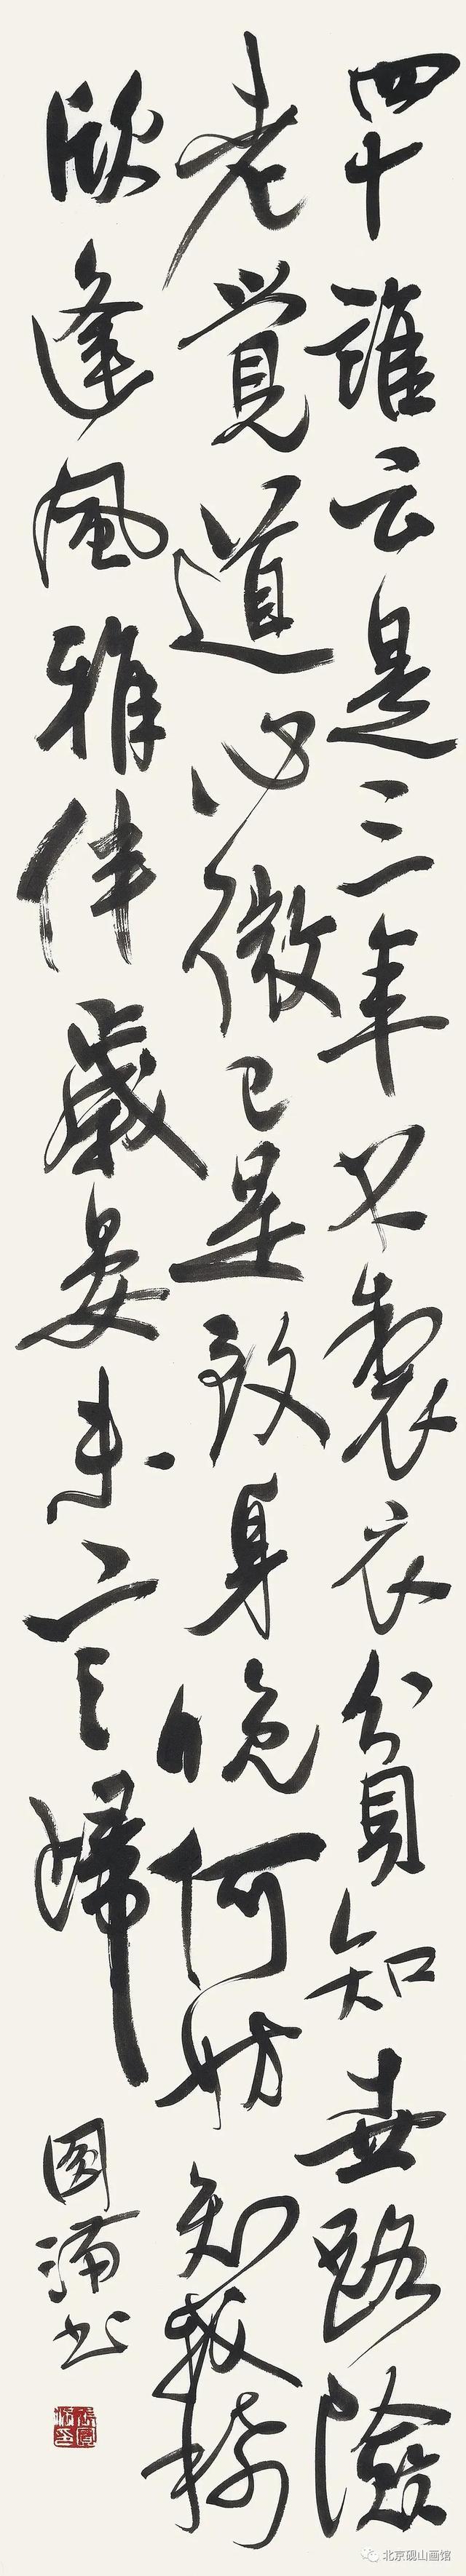 四十誰云是三年不製衣貧知世路險
老覺道心微已是致身晚何妨知我稀
欣逢風雅伴歲晏未言歸
书
北京砚山画馆